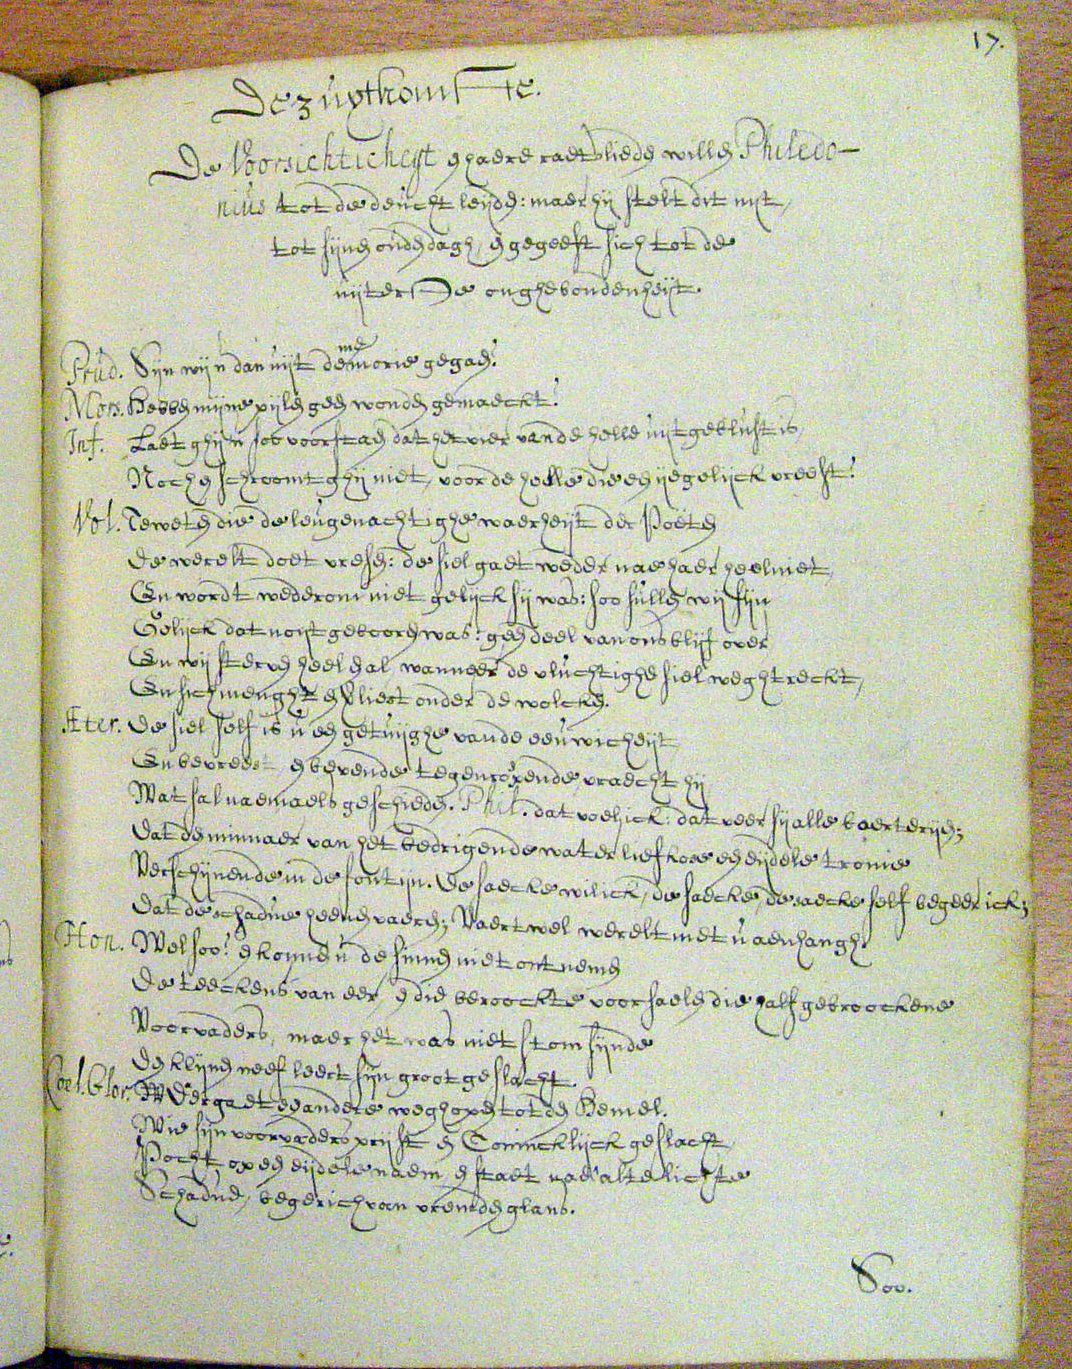 17.
De 3 uytkomste.
De Voorsichticheyt & haere raetslieden willen Philedo-
nius tot de deucht leyden: maer hij stelt dit uyt,
tot sijnen ouden dagh, & gegeeft sich tot de
uijterste onghebondenheyt.
Prud. Sijn wij u dan uijt de memorie gegaen?
Mors. Hebben mijne pijlen geen wonden gemaeckt?
Inf. Laet ghij u soo voorstaen dat het vier van de helle uijtgeblust is,
Noch & schroomt ghij niet, voor de helle die een ijegelijck vreest?
Vol. Te weten die de leugenachtighe waerheyt der Poëten
De werelt doet vresen: de siel gaet weder nae haer heel niet,
En wordt wederom niet gelijck sij was: soo sullen wij sijn
Gelijck dat noyt geboren was: geen deel van ons blijf over
En wij sterven heel & al, wanneer de vluchtighe siel wegh treckt,
En sich menght & vliest onder de wolcken.
Æter. De siel self is u een getuijghe van de eeuwicheijt
En bevreest & bevende tegen roepende vraecht hij
Wat sal naemaels geschieden. Phil. dat voel ick: dat veer sij alle baerterijen;
Dat den minnaer van het bedrigende water lief kose een eijdele tronie
Verschijnende in de fontijn. De saecke wil ick, de saecke, de saecke self begeer ick;
Dat de schaduwe heenen vaeren; Vaert wel werelt met u aenhangh.
Hon. Wel soo? & konnen u de sinnen niet ontnemen
De teeckens van eer, & die beroockte voorsaelen die half gebroockene
Voorvaders, maer het was niet stom sijnde
Den kleijnen neef leert sijn groot geslacht.
Coel. Glor. Der gaet een andere wegh open tot den Hemel.
Wie sijn voorvaders prijst & Conincklijck geslacht,
Pocht op een eijdele naem, & staet nae alte lichte
Schaduwe, begerich van vremden glans.
Soo.